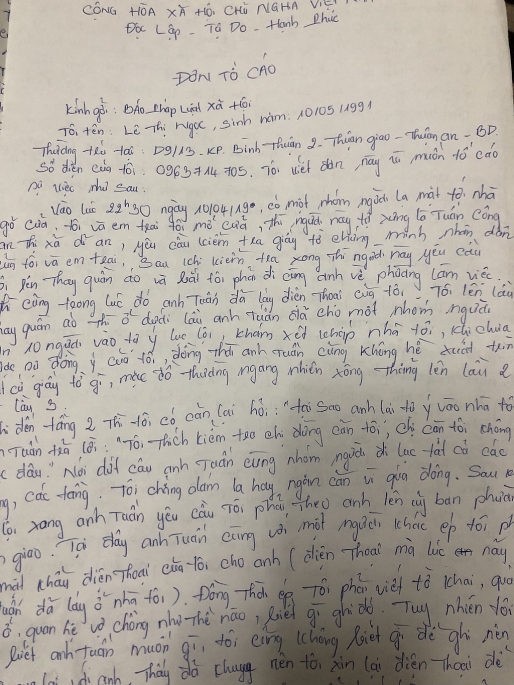 CỘNG HÒA XÃ HỘI CHỦ NGHĨA VIỆT
Độc Lập - Tự Do - Hạnh Phúc
ĐƠN TỐ CÁO
Kính gởi: BÁO Pháp Luật Xã Hội
Tôi tên: Lê Thị Ngọc, sinh năm: 10/05/1991
Thường trú tại: D9/13. KP. Bình Thuận 2 - Thuận giao - Thuận an - BD.
Số điện của tôi: 0963714705. Tôi viết đơn này vì muốn tố cáo
sự việc như sau:
Vào lúc 22h30 ngày 10/04/19, có một nhóm người lạ mặt tới nhà
gõ cửa, tôi và em trai tôi mở cửa, thì người này tự xưng là Tuấn Công
an Thị xã dĩ an, yêu cầu kiểm tra giấy tờ chứng minh nhân dân
của tôi và em trai, Sau khi kiểm tra xong thì người này yêu cầu
lên thay quần áo và bắt tôi phải đi cùng anh về phường làm việc.
cũng trong lúc đó anh Tuấn đã lấy điện thoại của tôi. Tôi lên lầu
thay quần áo thì ở dưới lầu anh Tuấn đã cho một nhóm người
10 người vào tự ý lục lội, khám xét khắp nhà tôi, khi chưa
sự đồng ý của tôi, đồng thời anh Tuấn cũng không hề xuất trình
cứ giấy tờ gì, mặc đồ thường ngang nhiên xông thẳng lên lầu 2
lầu 3
đến tầng 2 thì tôi có cản lại hỏi: "tại sao anh lại tự ý vào nhà tô
Tuấn trả lời: "Tôi thích kiểm tra chị đừng cản tôi, chị cản tôi không
đâu." Nói dứt câu anh Tuấn cùng nhóm người đi lục tất cả các
các tầng. Tôi chẳng dám la hay ngăn cản vì quá đông. Sau k
xong anh Tuấn yêu cầu tôi phải theo anh lên ủy ban phườn
giao. Tại đây anh Tuấn cùng với một người khác ép tôi ph
mật khẩu điện thoại của tôi cho anh (điện thoại mà lúc nãy
đã lấy ở nhà tôi). Đồng thời ép tôi phải viết tờ khai, qua
quan hệ vợ chồng như thế nào, biết gì ghi đó. Tuy nhiên tôi
biết anh Tuấn muốn gì, tôi cũng không biết gì để ghi nên
anh, Thấy đã khuya nên tôi xin lại điện thoại để